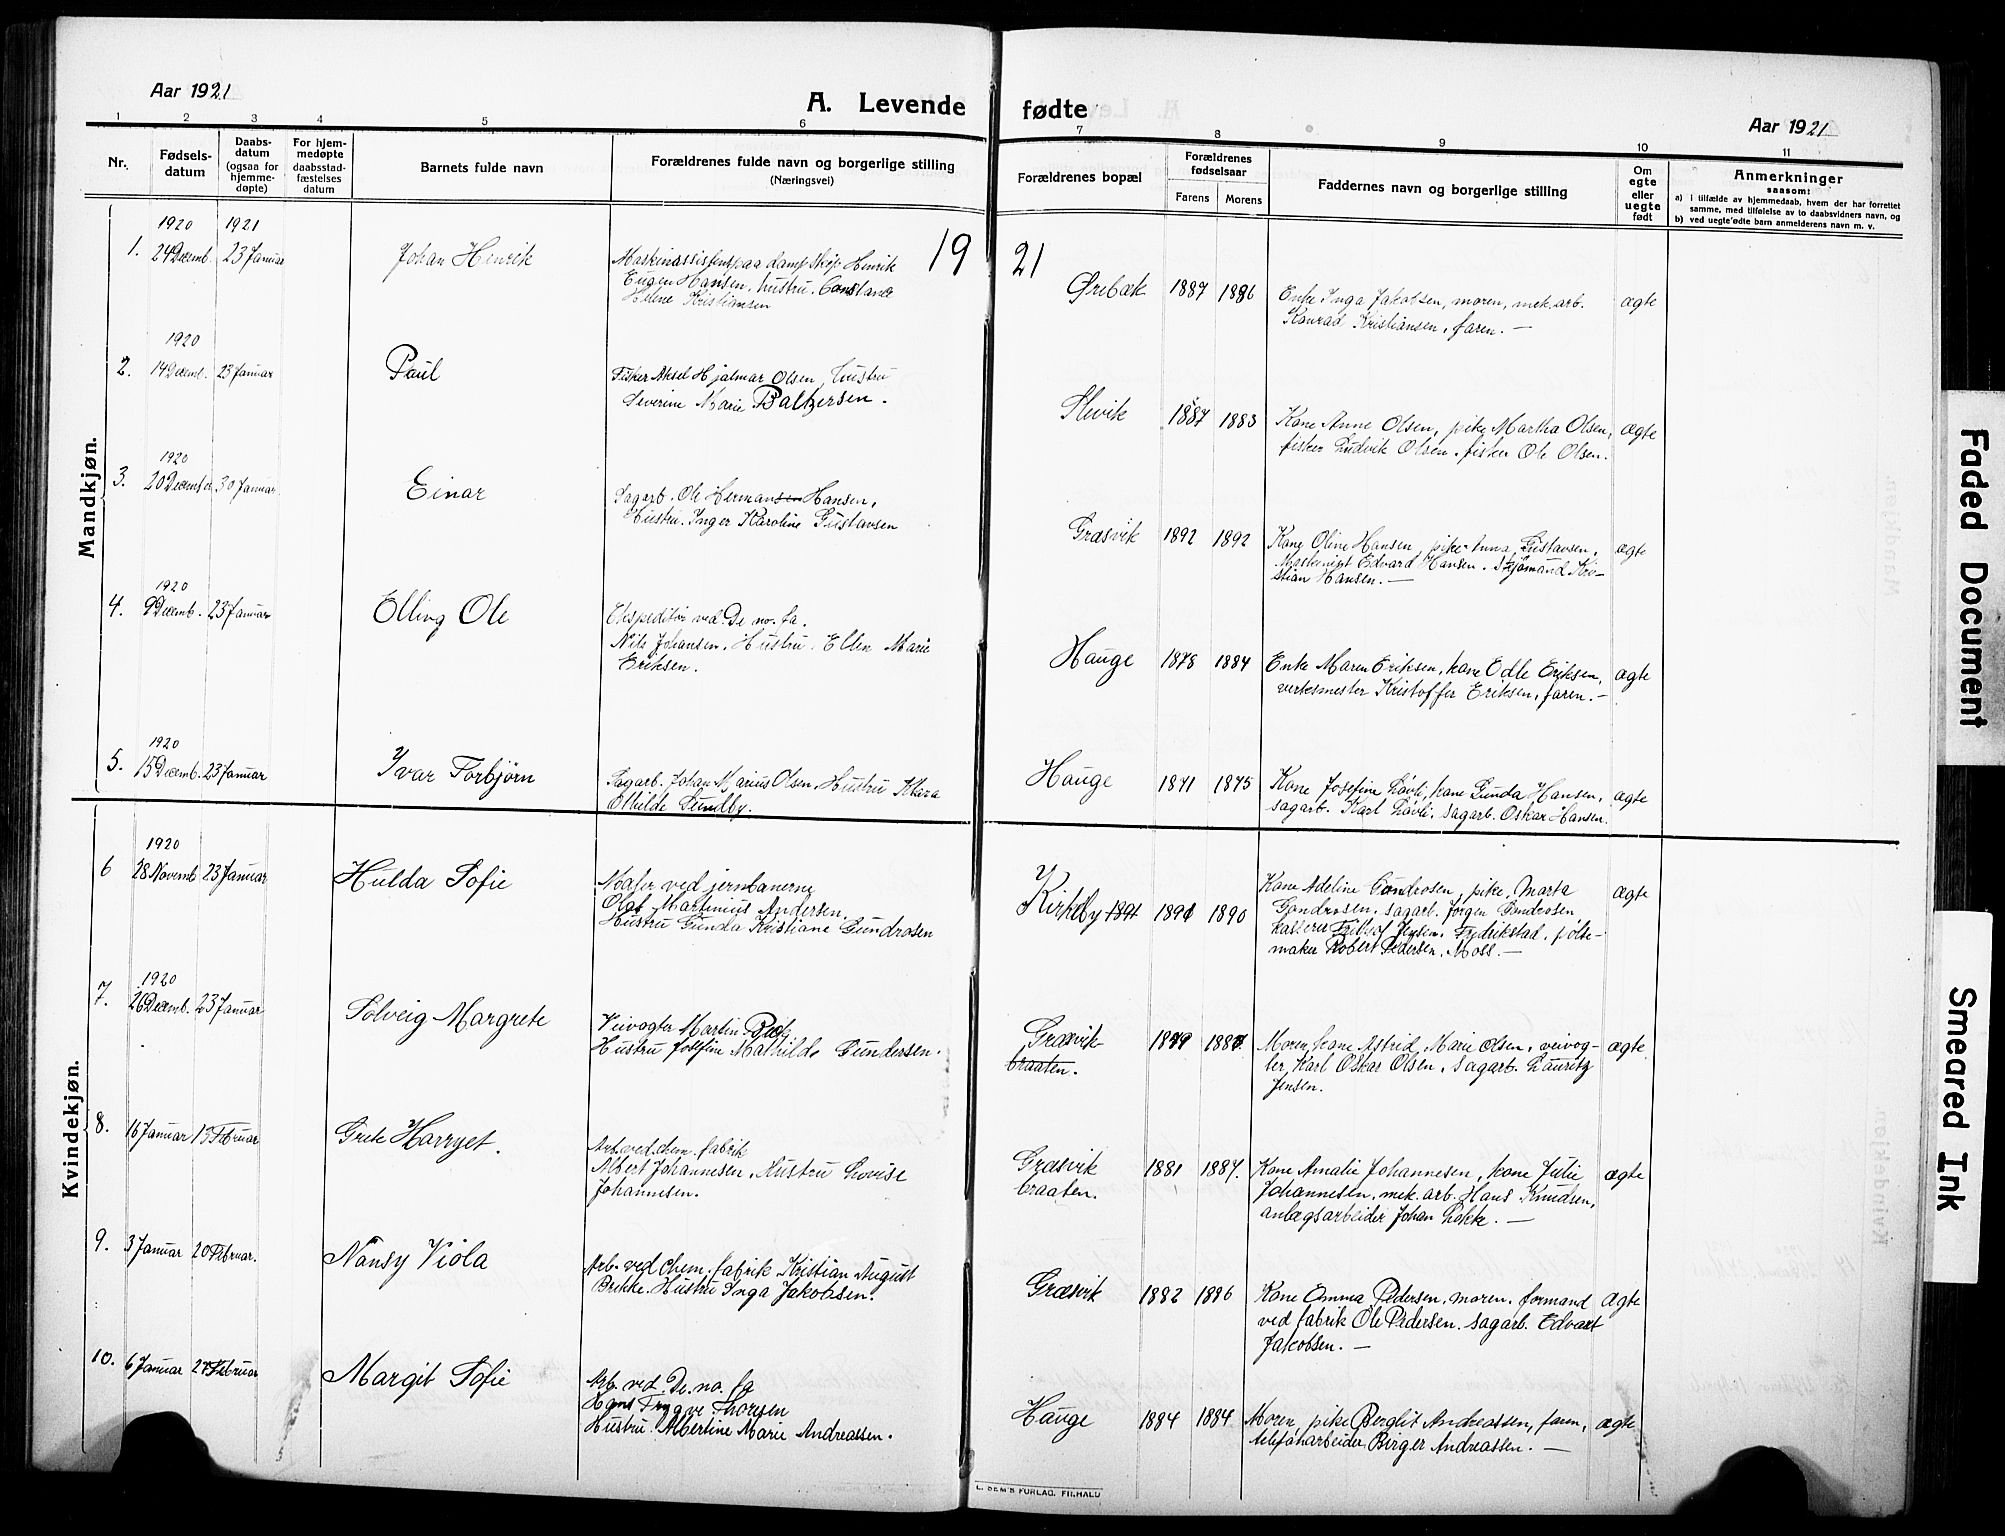 Aar 1921
A. Levende
fødte
Aar 1921
1 2 3 4 5 6 7 8 9 10 11
Nr.
Fødsels-
datum
Daabs-
datum
(ogsaa for
hjemme-
døpte)
For hjem-
medøpte
daabsstad-
fæstelses
datum
Barnets fulde navn
Forældrenes fulde navn og borgerlige stilling
(Næringsvei)
Forældrenes bopæl
Forældrenes
fødselsaar
Farens Morens
Faddernes navn og borgerlige stilling
Om
egte
eller
uegte
født
Anmerkninger
saasom:
a) i tilfælde av hjemmedaab, hvem der har forrettet
samme, med tilføielse av to daabsvidners navn, og
b) ved uegte fødte barn anmelderens navn m. v.
19 21
Mandkjøn.
1920 1921
1. 24 Decemb. 23 Januar
Johan Henrik
Maskinassistent paa dampskip Henrik
Eugen Hansen, hustru. Constance
Helene Kristiansen
Ørebæk 1887 1886
Enke Inga Jakobsen, moren, mek. arb.
Konrad Kristiansen, faren. —
ægte
1920
2. 14 Decemb. 23 Januar
Paul
Fisker Aksel Hjalmar Olsen, hustru
Severine Marie Baltzersen.
Slevik 1887 1883
Kone Anne Olsen, pike Martha Olsen,
fisker Ludvik Olsen, fisker Ole Olsen.
ægte
1920
3. 20 December 30 Januar
Einar
Sagarb. Ole Hermansen Hansen,
Hustru. Inger Karoline Gustavsen
Græsvik 1892 1892
Kone Oline Hansen, pike Anna Gustavsen,
Maskinist Edvard Hansen. Sjømand Kri-
stian Hansen. —
ægte
1920
4. 9 Decemb. 23 Januar
Elling Ole
Ekspeditør ved De no. fa.
Nils Johansen. Hustru. Ellen Marie
Eriksen.
Hauge 1878 1884
Enke Maren Eriksen, kone Edle Eriksen,
verksmester Kristoffer Eriksen, faren. —
ægte
1920
5. 15 Decemb. 23 Januar
Yvar Torbjørn
Sagarb. Johan Marius Olsen, Hustru Klara
Othilde Lundby.
Hauge 1871 1875
Kone Josefine Løvli, kone Gunda Hansen,
sagarb. Karl Løvli, sagarb. Oskar Hansen.
ægte
Kvindekjøn.
1920
6 28 Novemb 23 Januar
Hulda Sofie
ved jernbanerne
Olaf Martinius Andersen.
Hustru Gunda Kristiane Gundrosen
Kirkeby 1891 1891 1890
Kone Adeline Gundrosen, pike, Marta
Gundrosen, sagarb. Jørgen Gundrosen,
kasserer Fritjof Jensen, Fredrikstad, pølse-
maker Robert Pedersen, Moss. —
ægte
1920
7. 26 Decemb. 23 Januar
Solveig Margrete
Veivogter Martin
Hustru Josefine Mathilde Gundersen.
Græsvik
braaten. 1879 1887
Moren, kone Astrid Marie Olsen, veivog-
ter Karl Oskar Olsen, sagarb. Lauritz
Jensen.
ægte
8. 16 Januar 13 Februar
Grete Harryet.
Arb. ved chem. fabrik
Albert Johannesen, Hustru Lovise
Johannesen.
Græsvik
braaten. 1881 1887.
Kone Amalie Johannesen, kone Julie
Johannesen, mek. arb. Hans Knudsen,
anlægsarbeider Johan Løkke. —
ægte
9. 3 Januar 20 Februar.
Nansy Viola
Arb. ved chem. fabrik Kristian August
Brekke. Hustru Inga Jakobsen.
Græsvik 1882 1886
Kone Emma Pedersen, moren. formand
ved fabrik Ole Pedersen. sagarb. Edvart
Jakobsen. —
ægte
10. 6 Januar 27 Februar
Margit Sofie
Arb. ved. De. no. fa
Hans Trygve Thoresen
Hustru. Albertine Marie Andreassen.
Hauge 1884 1884.
Moren, pike Berglit Andreassen, faren,
telefonarbeider Birger Andreassen. —
ægte
SEM'S FORLAG. FR.HALD
Faded Document
Smeared Ink